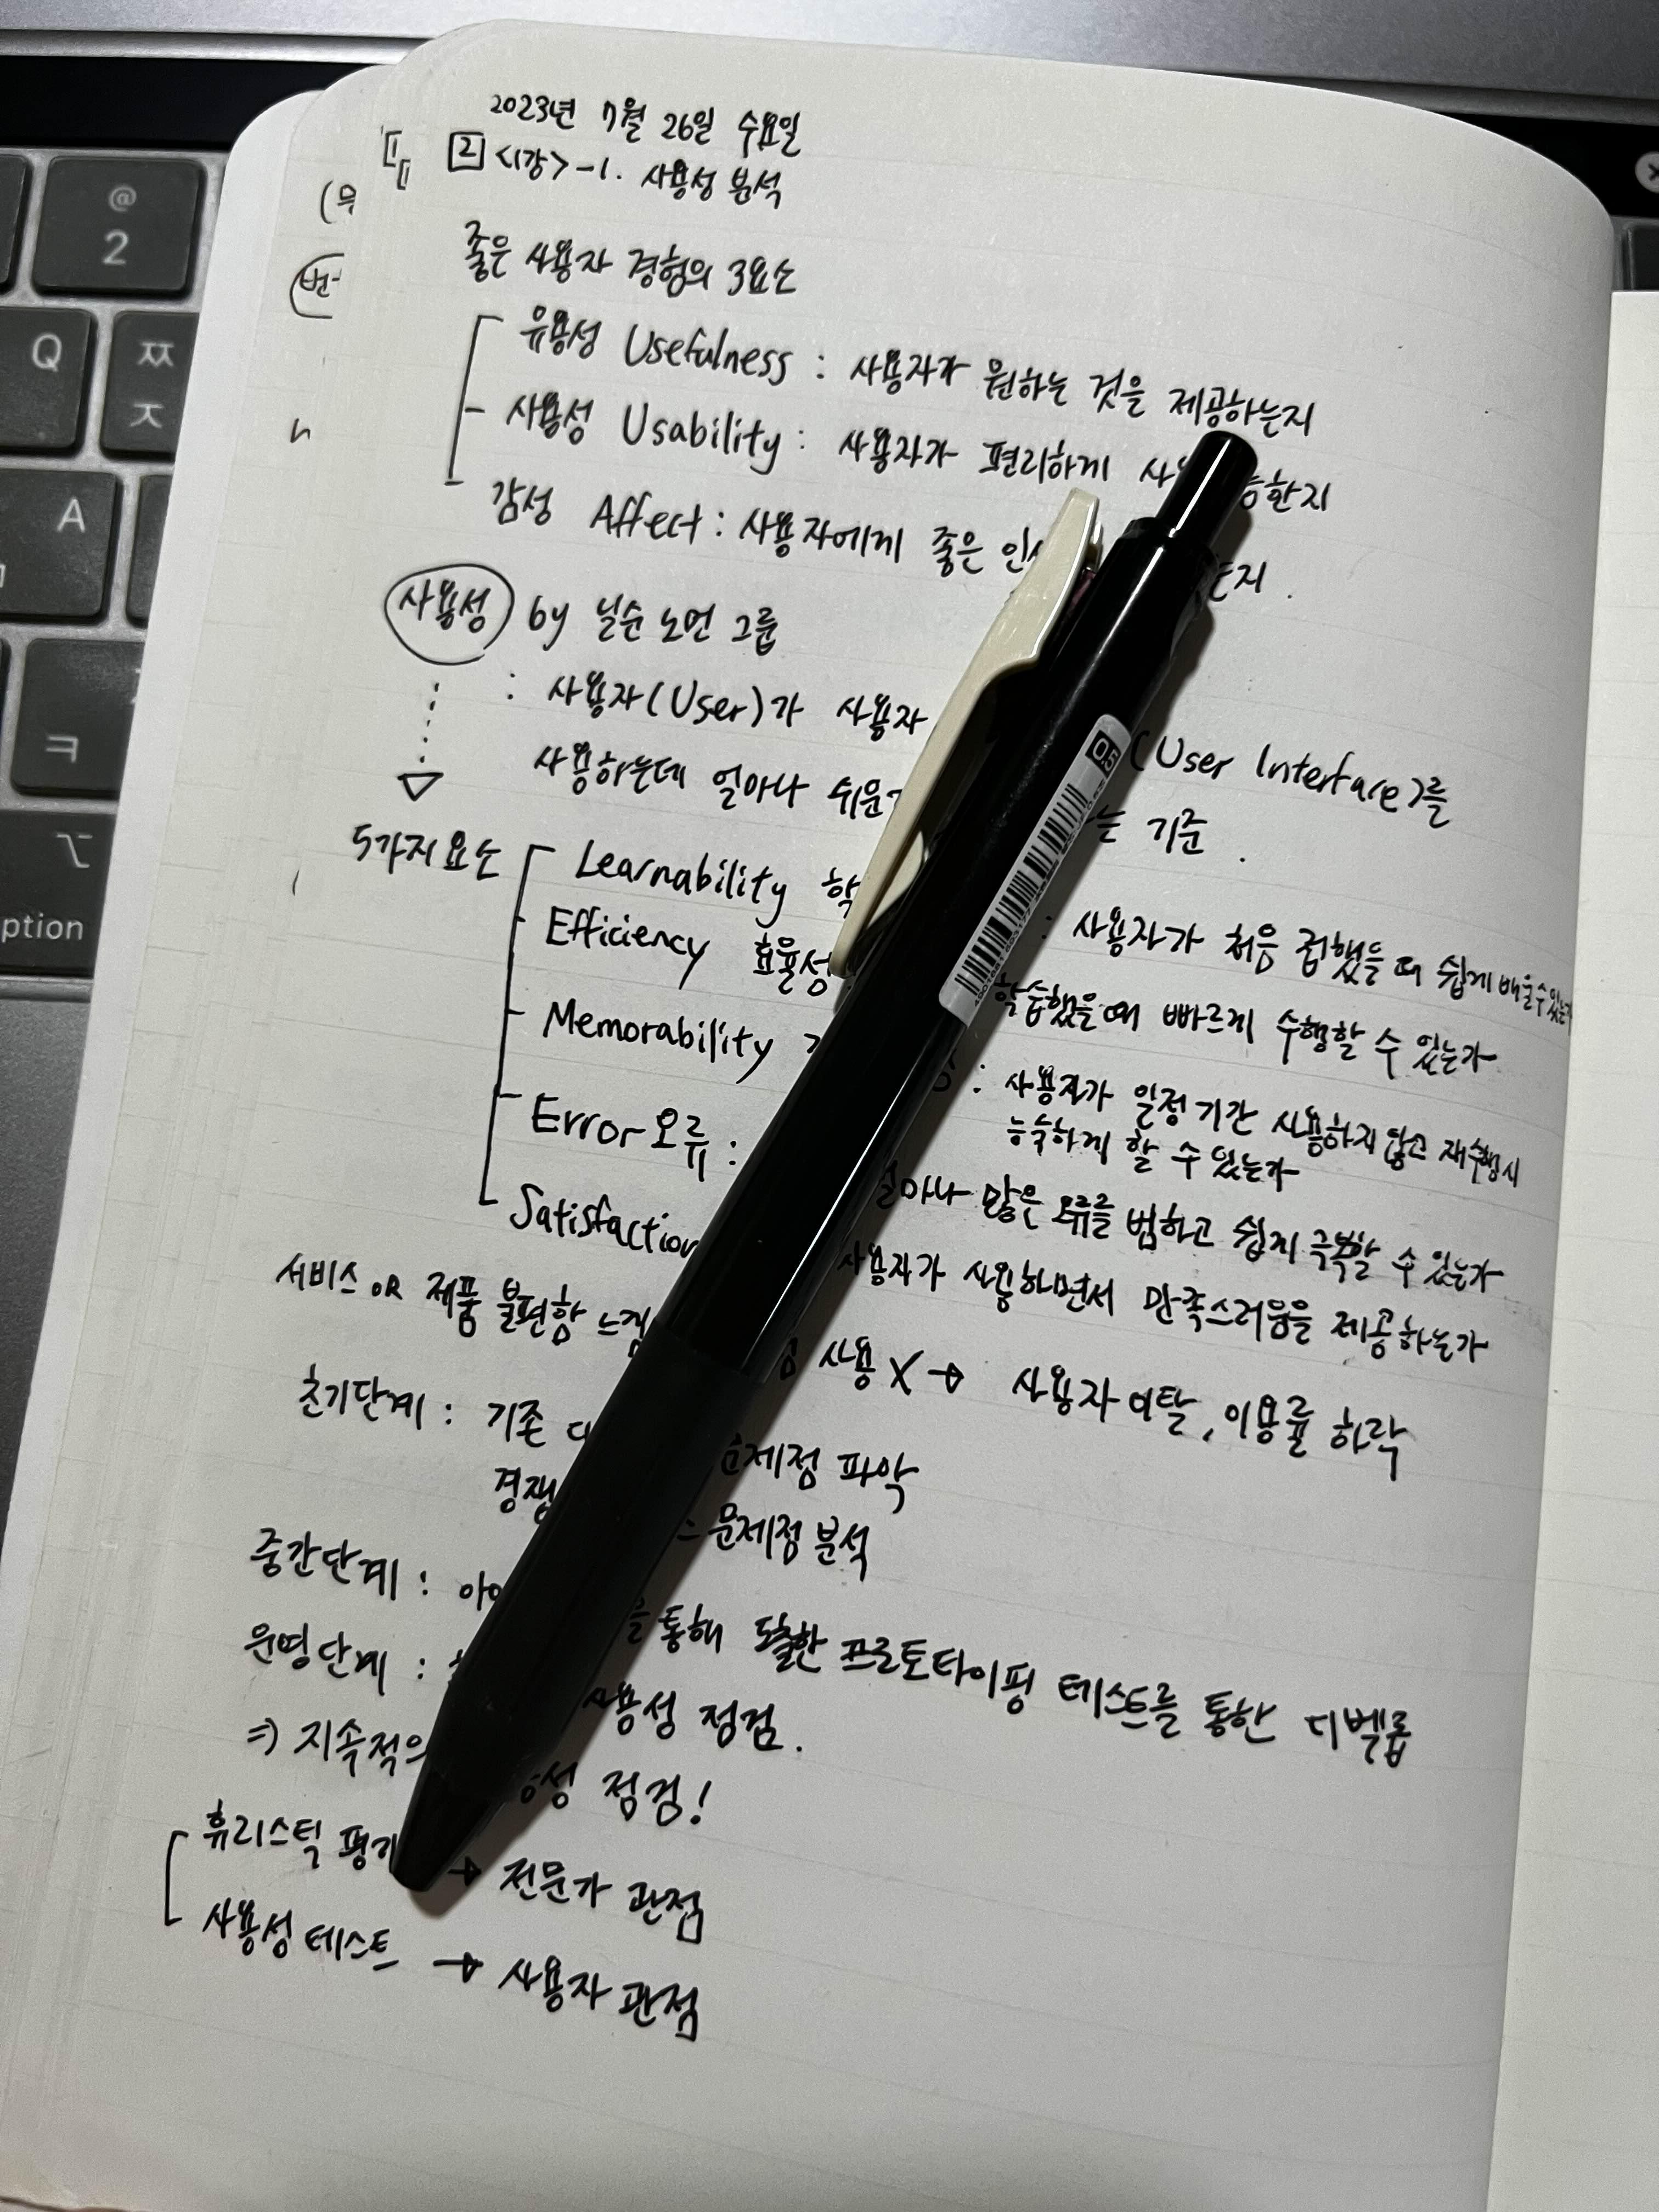 2023년 7월 26일 수요일
2 <1강>-1. 사용성 분석
좋은 사용자 경험의 3요소
유용성 Usefulness : 사용자가 원하는 것을 제공하는지
사용성 Usability : 사용자가 편리하게
감성 Affect : 사용자에게 좋은
사용성 by 닐슨 노먼 그룹
: 사용자(User)가 사용자 (User Interface)를
사용하는데 얼마나 쉬운 기준.
5가지 요소
Learnability : 사용자가 처음 접했을 때 쉽게 배울 수 있는가
Efficiency 효율성 학습했을 때 빠르게 수행할 수 있는가
Memorability : 사용자가 일정 기간 사용하지 않고 재수행시
능숙하게 할 수 있는가
Error 오류 : 얼마나 많은 오류를 범하고 쉽게 극복할 수 있는가
Satisfaction 사용자가 사용하면서 만족스러움을 제공하는가
서비스 OR 제품 불편함 사용 X → 사용자 이탈, 이용률 하락
초기단계 : 기존 문제점 파악
문제점 분석
중간단계 : 통해 도출한 프로토타이핑 테스트를 통한 디벨롭
운영단계 : 사용성 점검.
⇒ 지속적 점검!
휴리스틱 평가 → 전문가 관점
사용성 테스트 → 사용자 관점
@
2
Q
ㅉ
ㅈ
A
ㅋ
⌥
ption
0.5